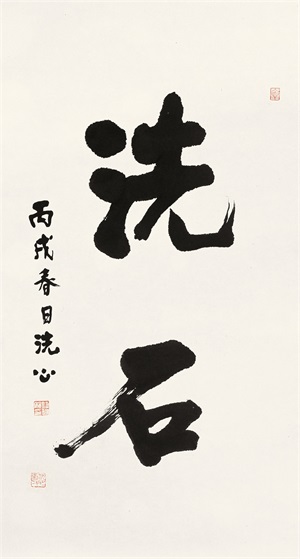 洗石
丙戌春日洗心